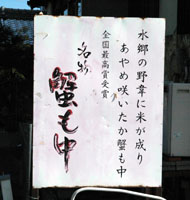 水郷の野葦に米が成り
あやめ咲いたか蟹も中
全国最高賞受賞
名物
蟹も中